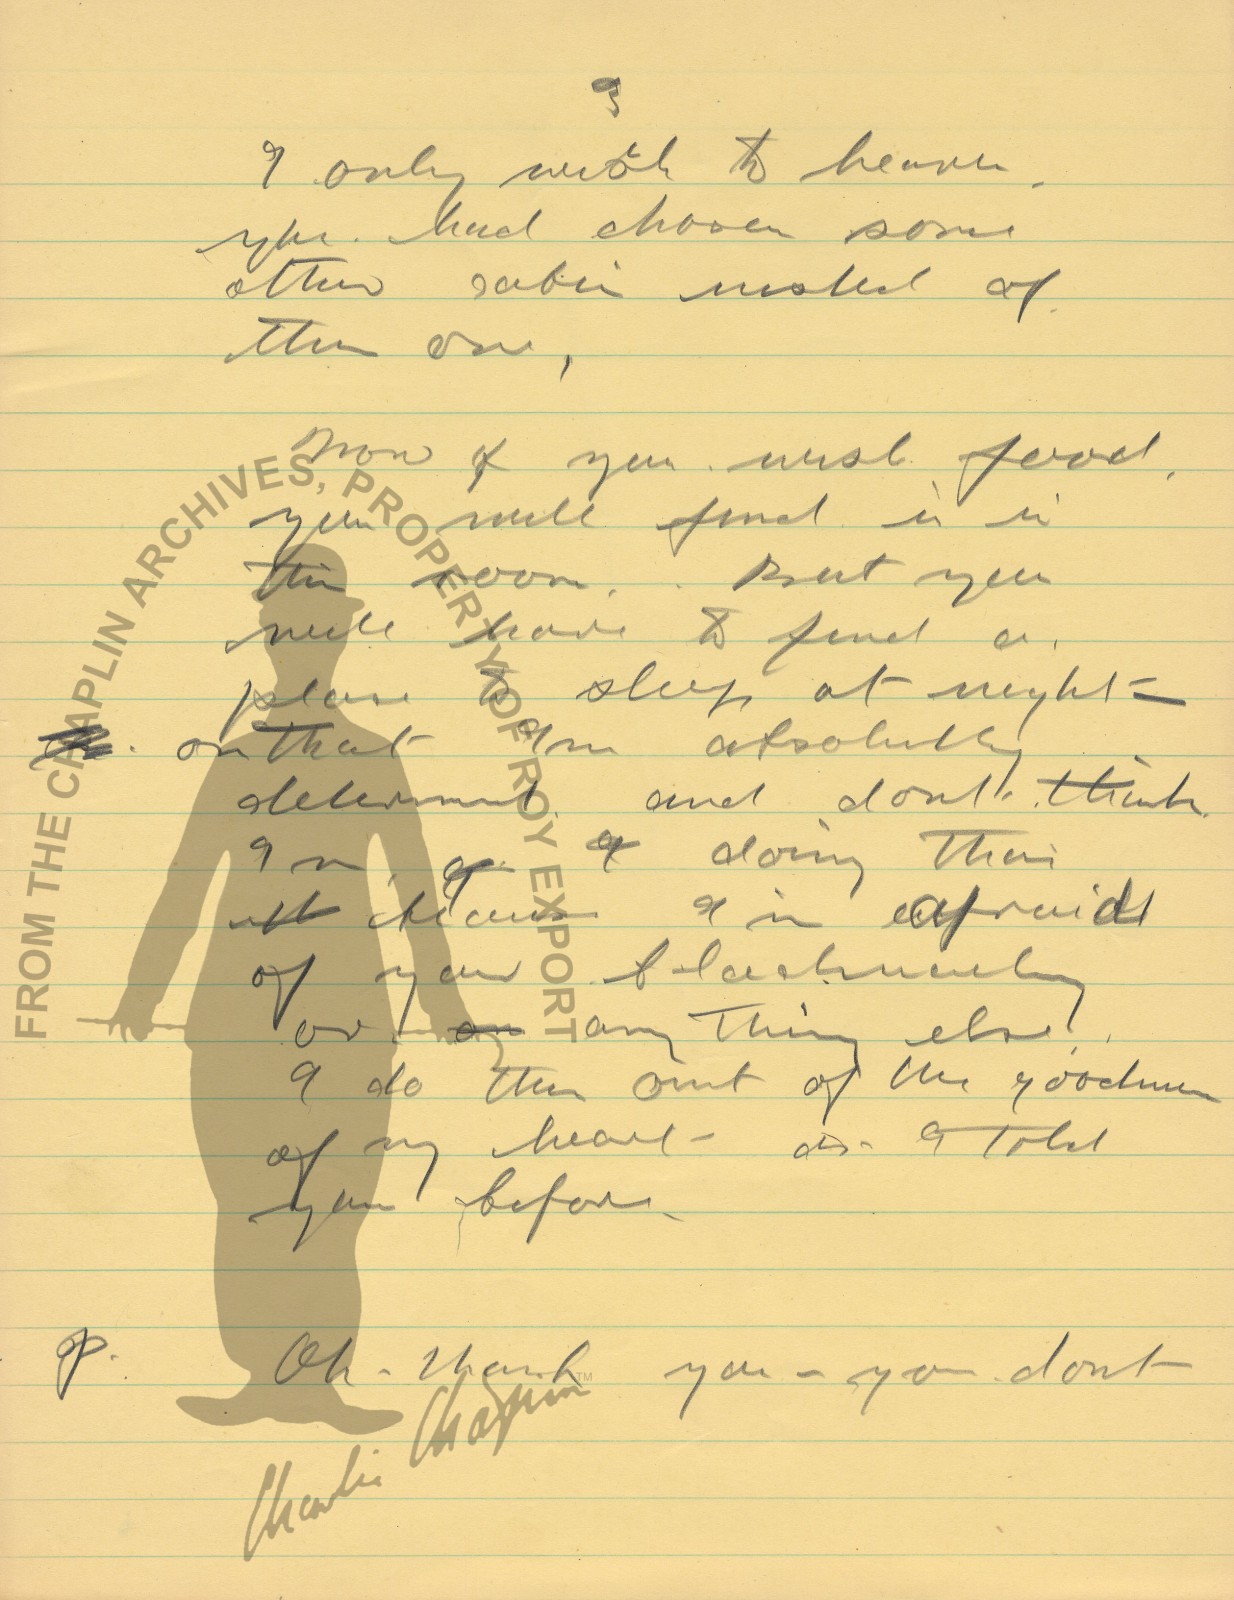 3
I only wish to heaven
you had chosen some
other cabin insted of
this one,
Now if you wish food,
you will find it in
this room. But you
will have to find a
place to sleep at night –
on that I'm absolutely
determined and dont think
I'm doing this
because I'm afraid
of your blackmailing
or anything else.
I do this out of the goodness
of my heart – as I told
you before.
P. Oh – thank you – you dont
FROM THE CHAPLIN ARCHIVES, PROPERTY OF ROY EXPORT
Charlie Chaplin
TM